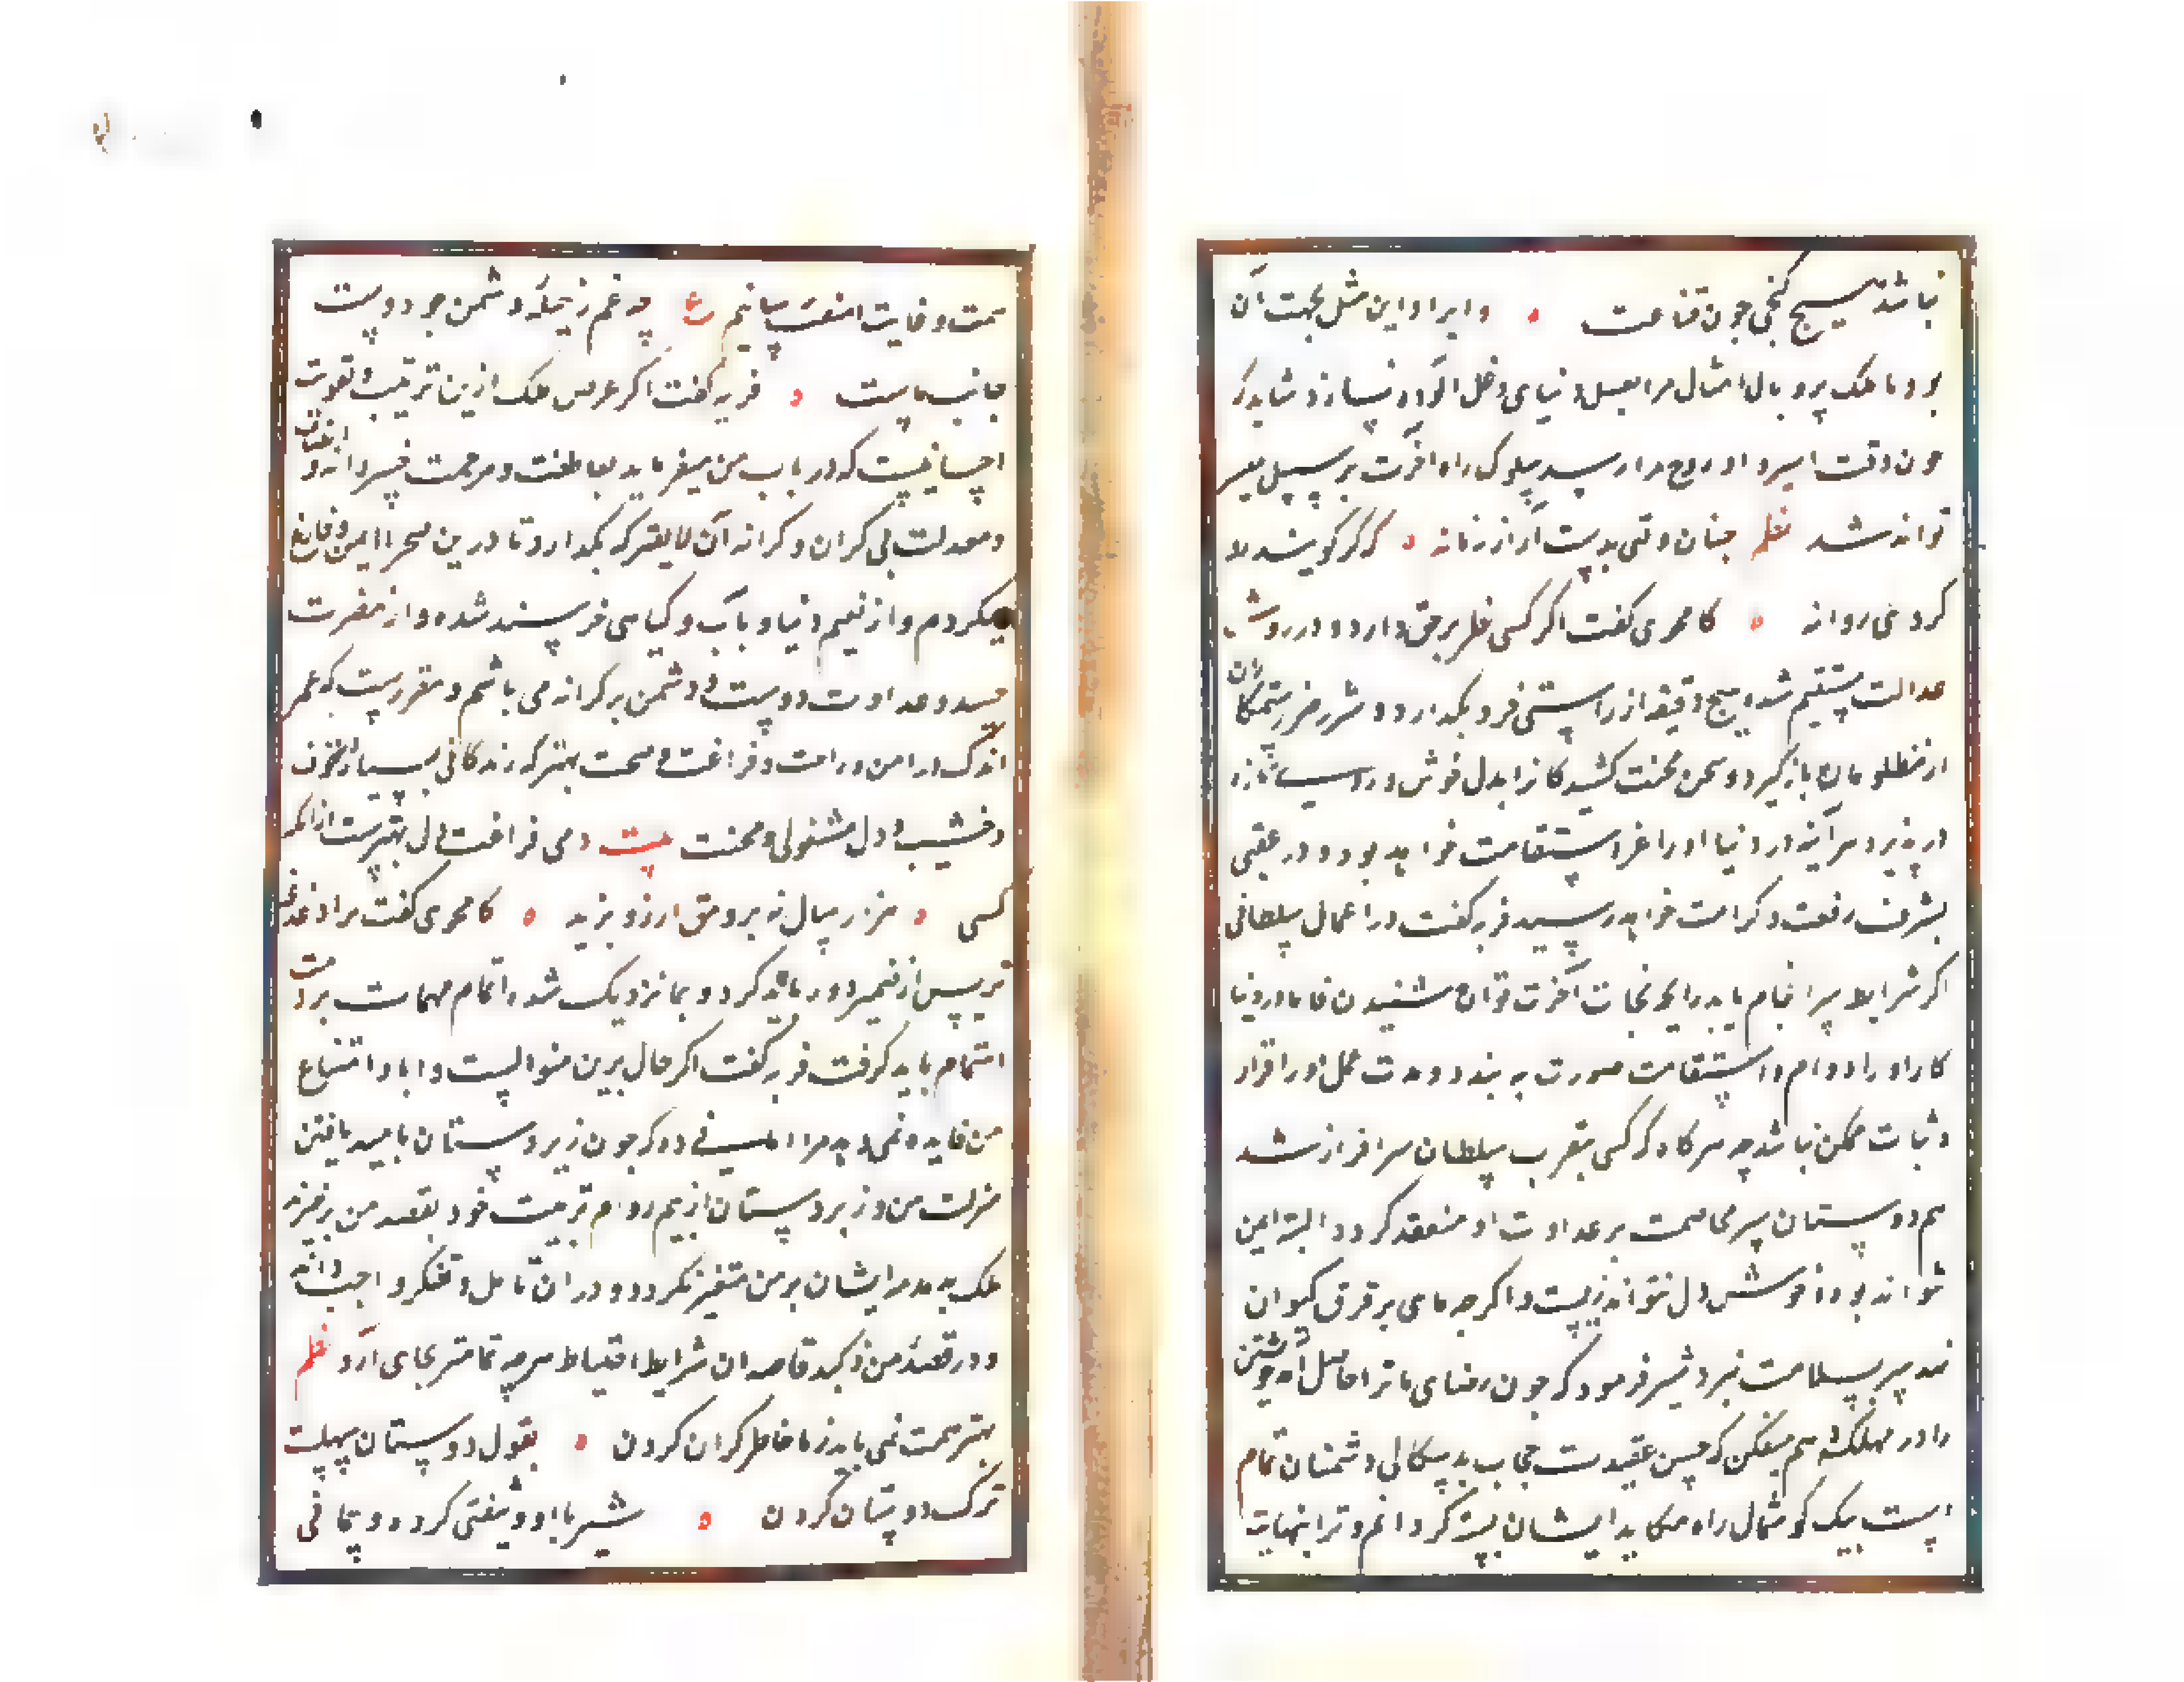 نباشد هیچ کنجی چون قناعت ه و ایراد این مثل بجهت آن
بود تا ملک پر و بال امثال مرا بعسل دنیای دغل آلوده نسازد شاید که
چون وقت اسیر و او روح مدار رسد سلوک راه آخرت بر سبیل
تواند شد نظم چنان وقتی بدست آر از زمانه ه که کر کویند
کردی روانه ه کامجوی کفت اکر کسی نظر بر حق دارد و در روش
عدالت مستقیم شده هیچ دقیقه از راستی فرو نکذارد و شرر ضرر ستمکاران
از مظلومان بازکیرد و سخن محنت کشیدکانرا بدل خوش و روی تازه
در پذیرد هرآینه در دنیا او را عز استقامت خواهد بود و در عقبی
بشرف رفعت و کرامت خواهد رسید فریه کفت در اعمال سلطانی
اکر شرایط سرانجام یابد رایحه نجات آخرت توان شنیدن فاما در دنیا
کار او را دوام و استقامت صورت نه بندد و مدت عمل او را قرار
و ثبات ممکن نباشد چه هرکاه که کسی بتقرب سلطان سرافراز شد
هم دوستان سر مخاصمت بر عداوت او منعقد کردد البته ایمن
نتواند بود و خوش دل نتواند زیست و اکرچه پای بر فرق کیوان
نهد سر بسلامت نبرد شیر فرمود که چون رضای ما ترا حاصل آمد خویشتن
را در مهلکه وهم میفکن که حسن عقیدت حجاب بدسکالی دشمنان تمام
است بیک کوشمال راه مکاید ایشان بسته کردانم و ترا بنهایت
همت و غایت امنیت رسانیم ع چه غم ز حیله دشمن چو دوست
جانب ماست ه فریه کفت اکر غرض ملک ازین ترتیب و تقویت
احسانیست که در باب من میفرماید بعاطفت و مرحمت خسروانه و انصاف
و معدلت بی کران و کرانه آن لایقتر که بکذارد تا درین صحرا ایمن و فارغ
میکردم و از نعیم دنیا و بآب و کیاهی خرسند شده و از مضرت
حسد و عداوت دوست و دشمن بر کرانه می باشم و مقررست که عمر
اندک در امن و راحت و فراغت و صحت بهتر که زندکانی بسیار در خوف
و خشیت و دل مشغولی و محنت بیت دمی فراغت دل بهترست از آنکه
کسی ه هزار سال نه بر وفق آرزو بزید ه کامجوی کفت مرا دغدغه
ترس از ضمیر دور باید کرد و بما نزدیک شده اتمام مهمات بر ذمت
اهتمام باید کرفت فریه کفت اکر حال برین منوالست و ابا و امتناع
من فایده نمی دهد مرا امانی ده که چون زیردستان بامید یافتن
منزلت من و زبردستان از بیم دوام تربیت خود بقصد من برخیزند
ملک به دمدمه ایشان بر من متغیر نکردد و در آن تامل و تفکر واجب داند
و در قضیه من و کید قاصدان شرایط احتیاط هرچه تمامتر بجای آرد نظم
بهر تهمت نمی باید ز ما خاطر کران کردن ه بقول دوستان سهلست
ترک دوستان کردن ه شیر با او وثیقتی کرده و پیمانی